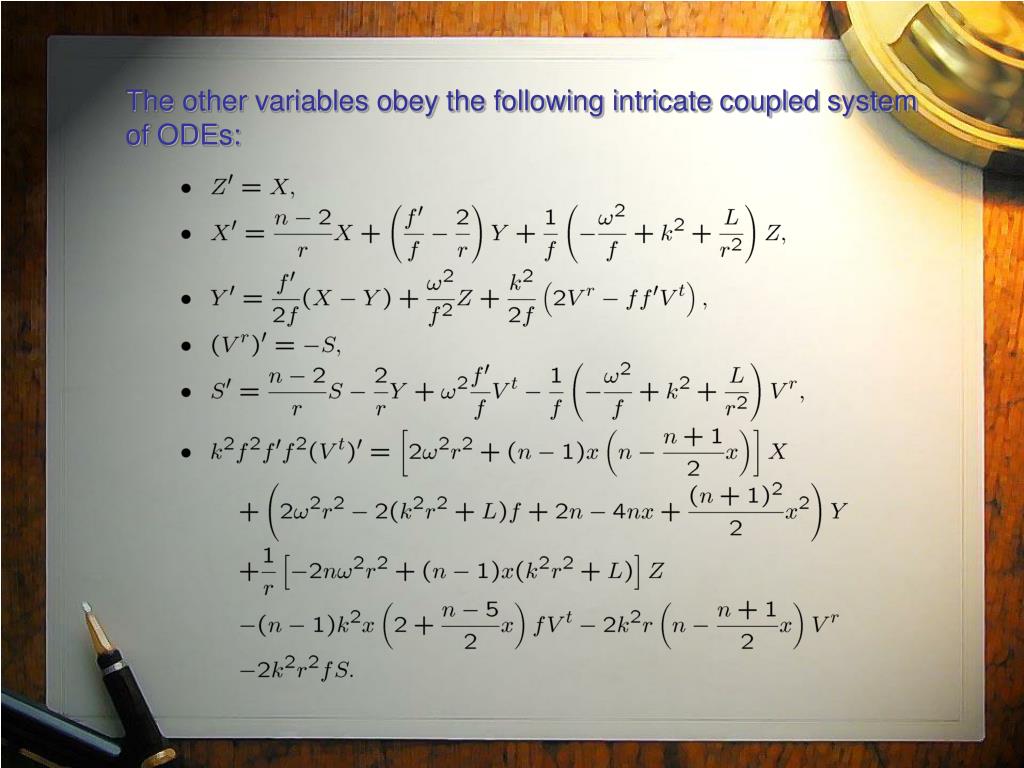 The other variables obey the following intricate coupled system
of ODEs:
• Z′ = X,
• X′ = \frac{n − 2}{r}X + \left(\frac{f′}{f} − \frac{2}{r}\right)Y + \frac{1}{f}\left(−\frac{ω^2}{f} + k^2 + \frac{L}{r^2}\right)Z,
• Y′ = \frac{f′}{2f}(X − Y) + \frac{ω^2}{f^2}Z + \frac{k^2}{2f}(2V^r − ff′V^t),
• (V^r)′ = −S,
• S′ = \frac{n − 2}{r}S − \frac{2}{r}Y + ω^2\frac{f′}{f}V^t − \frac{1}{f}\left(−\frac{ω^2}{f} + k^2 + \frac{L}{r^2}\right)V^r,
• k^2f^2f′f^2(V^t)′ = \left[2ω^2r^2 + (n − 1)x\left(n − \frac{n + 1}{2}x\right)\right]X
+ \left(2ω^2r^2 − 2(k^2r^2 + L)f + 2n − 4nx + \frac{(n + 1)^2}{2}x^2\right)Y
+\frac{1}{r}[−2nω^2r^2 + (n − 1)x(k^2r^2 + L)]Z
−(n − 1)k^2x\left(2 + \frac{n − 5}{2}x\right)fV^t − 2k^2r\left(n − \frac{n + 1}{2}x\right)V^r
−2k^2r^2fS.